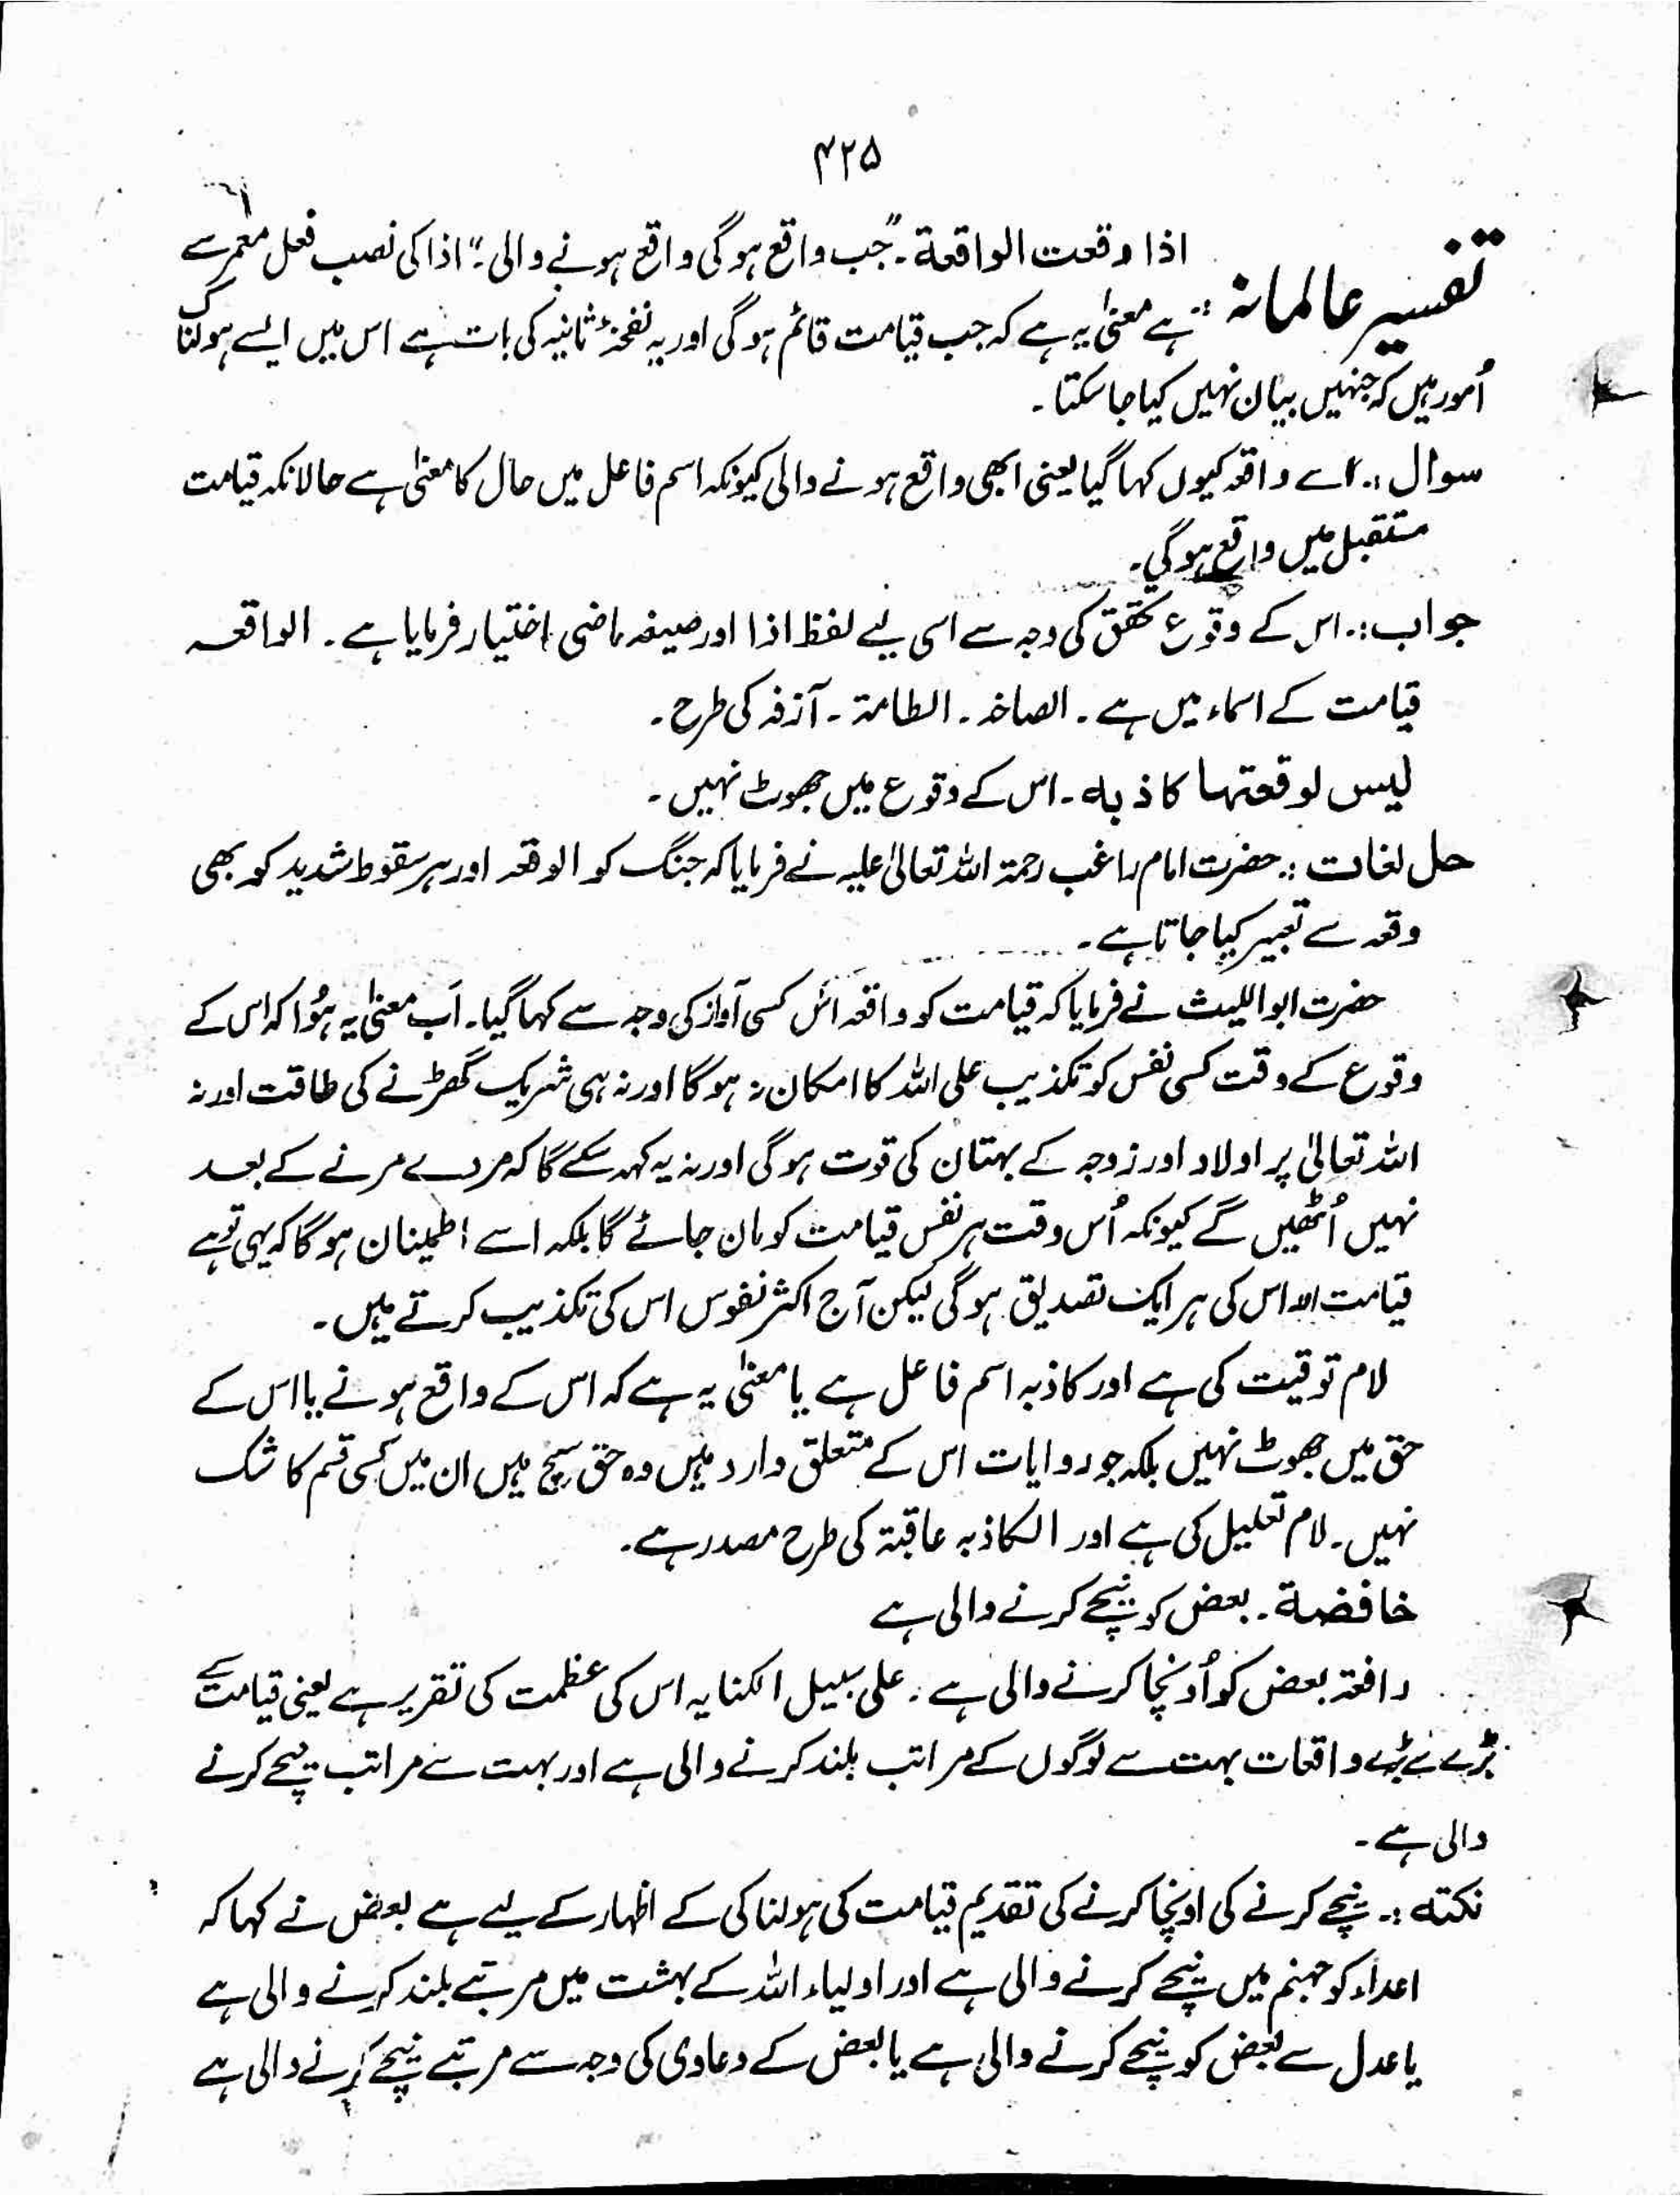 ۴۲۵
تفسیر عالمانہ :۔ اذا وقعت الواقعة۔ "جب واقع ہوگی واقع ہونے والی۔" اذا کی نصب فعل مضمر سے
ہے معنیٰ یہ ہے کہ جب قیامت قائم ہوگی اور یہ نفخۂ ثانیہ کی بات ہے اس میں ایسے ہولناک
اُمور ہیں کہ جنہیں بیان نہیں کیا جا سکتا۔
سوال :۔ اسے واقعہ کیوں کہا گیا یعنی ابھی واقع ہونے والی کیونکہ اسم فاعل میں حال کا معنیٰ ہے حالانکہ قیامت
مستقبل میں واقع ہوگی۔
جواب :۔ اس کے وقوع تحقق کی وجہ سے اسی لیے لفظ اذا اور صیغہ ماضی اختیار فرمایا ہے۔ الواقعہ
قیامت کے اسماء میں ہے۔ الصاخہ۔ الطامۃ۔ آزفہ کی طرح۔
لیس لوقعتها کاذبه۔ اس کے وقوع میں جھوٹ نہیں۔
حل لغات :۔ حضرت امام راغب رحمۃ اللہ تعالیٰ علیہ نے فرمایا کہ جنگ کو الوقعہ اور ہر سقوط شدید کو بھی
وقعہ سے تعبیر کیا جاتا ہے۔
حضرت ابو اللیث نے فرمایا کہ قیامت کو واقعہ اس کسی آواز کی وجہ سے کہا گیا۔ اَب معنیٰ یہ ہُوا کہ اس کے
وقوع کے وقت کسی نفس کو تکذیب علی اللہ کا امکان نہ ہوگا اور نہ ہی شریک گھڑنے کی طاقت اور نہ
اللہ تعالیٰ پر اولاد اور زوجہ کے بہتان کی قوت ہوگی اور نہ یہ کہہ سکے گا کہ مردے مرنے کے بعد
نہیں اُٹھیں گے کیونکہ اُس وقت ہر نفس قیامت کو مان جائے گا بلکہ اسے اطمینان ہوگا کہ یہی تو ہے
قیامت اور اس کی ہر ایک تصدیق ہوگی لیکن آج اکثر نفوس اس کی تکذیب کرتے ہیں۔
لام توقیت کی ہے اور کاذبہ اسم فاعل ہے یا معنیٰ یہ ہے کہ اس کے واقع ہونے یا اس کے
حق میں جھوٹ نہیں بلکہ جو روایات اس کے متعلق وارد ہیں وہ حق سچ ہیں ان میں کسی قسم کا شک
نہیں۔ لام تعلیل کی ہے اور الکاذبہ عاقبۃ کی طرح مصدر ہے۔
خافضة۔ بعض کو نیچے کرنے والی ہے
رافعۃ بعض کو اُونچا کرنے والی ہے۔ علی سبیل الکنایہ اس کی عظمت کی تقریر ہے یعنی قیامت کے
بڑے بڑے واقعات بہت سے لوگوں کے مراتب بلند کرنے والی ہے اور بہت سے مراتب نیچے کرنے
والی ہے۔
نکته :۔ نیچے کرنے کی اونچا کرنے کی تقدیم قیامت کی ہولناکی کے اظہار کے لیے ہے بعض نے کہا کہ
اعداء کو جہنم میں نیچے کرنے والی ہے اور اولیاء اللہ کے بہشت میں مرتبے بلند کرنے والی ہے
یا عدل سے بعض کو نیچے کرنے والی ہے یا بعض کے دعاوی کی وجہ سے مرتبے نیچے کرنے والی ہے